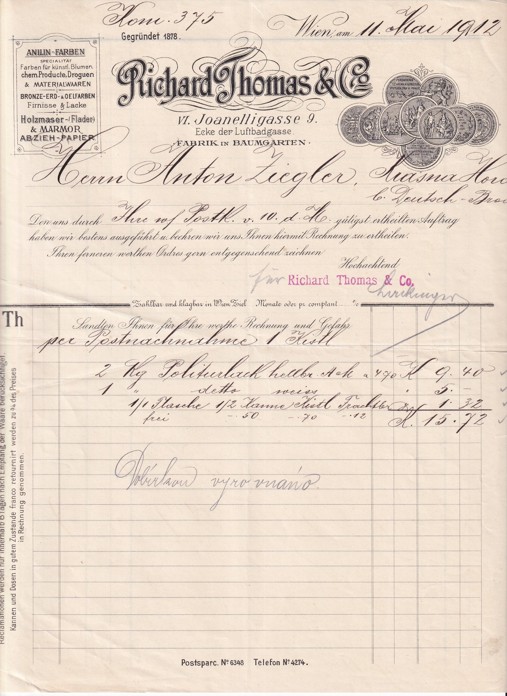 Nom. 375
Gegründet 1878.
Wien, am 11. Mai 1912
ANILIN-FARBEN
SPECIALITÄT
Farben für künstl. Blumen.
chem. Producte, Droguen
& MATERIALWAREN
BRONZE-ERD- & OELFARBEN
Firnisse & Lacke
Holzmaser-(Flader)
& MARMOR
ABZIEH-PAPIER.
Richard Thomas & Co
VI. Joanelligasse 9.
Ecke der Luftbadgasse.
FABRIK IN BAUMGARTEN.
Herrn Anton Ziegler,
b. Deutsch-Brod
Den uns durch Ihre w/ Postk. v. 10. d. M. gütigst ertheilten Auftrag
haben wir bestens ausgeführt u. beehren wir uns Ihnen hiermit Rechnung zu ertheilen.
Ihren ferneren werthen Ordres gern entgegensehend zeichnen
Hochachtend
für Richard Thomas & Co.
Zahlbar und klagbar in Wien Ziel Monate oder pr. comptant %
Th
Sandten Ihnen für Ihre werthe Rechnung und Gefahr
per Postnachnahme 1 Kistl
2 Kg Politurlack hell 4.70 K 9.40
1 " detto weiss " 5.-
1/1 Flasche 1/2 Kanne Kistl 1.32
frei -50 -70 -12 K. 15.72
Dobírkou vyrovnáno
Reclamationen werden nur innerhalb 8 Tagen nach Empfang der Waare berücksichtiget.
Kannen und Dosen in gutem Zustande franco retournirt werden zu ¾ des Preises
in Rechnung genommen.
Postsparc. Nº 6348 Telefon Nº 4274.